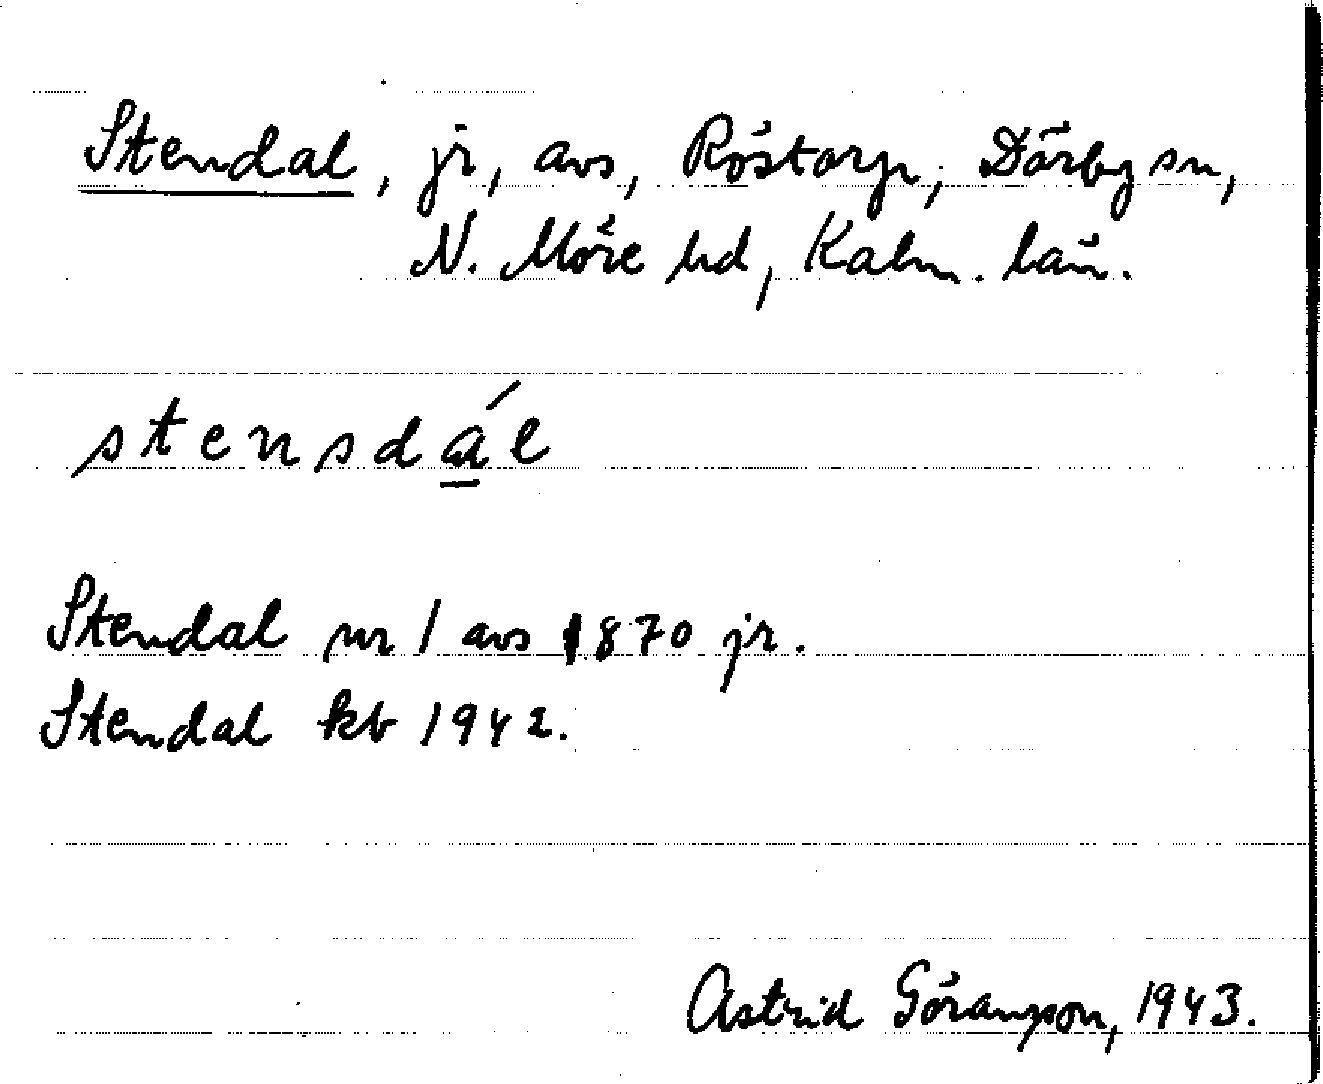 Stendal, jr, avs, Röstorp, Dörby sn,
N. Möre hd, Kalm. län.
stensdál
Stendal nr 1 avs 1870 jr.
Stendal kb 1942.
Astrid Göranzson, 1943.